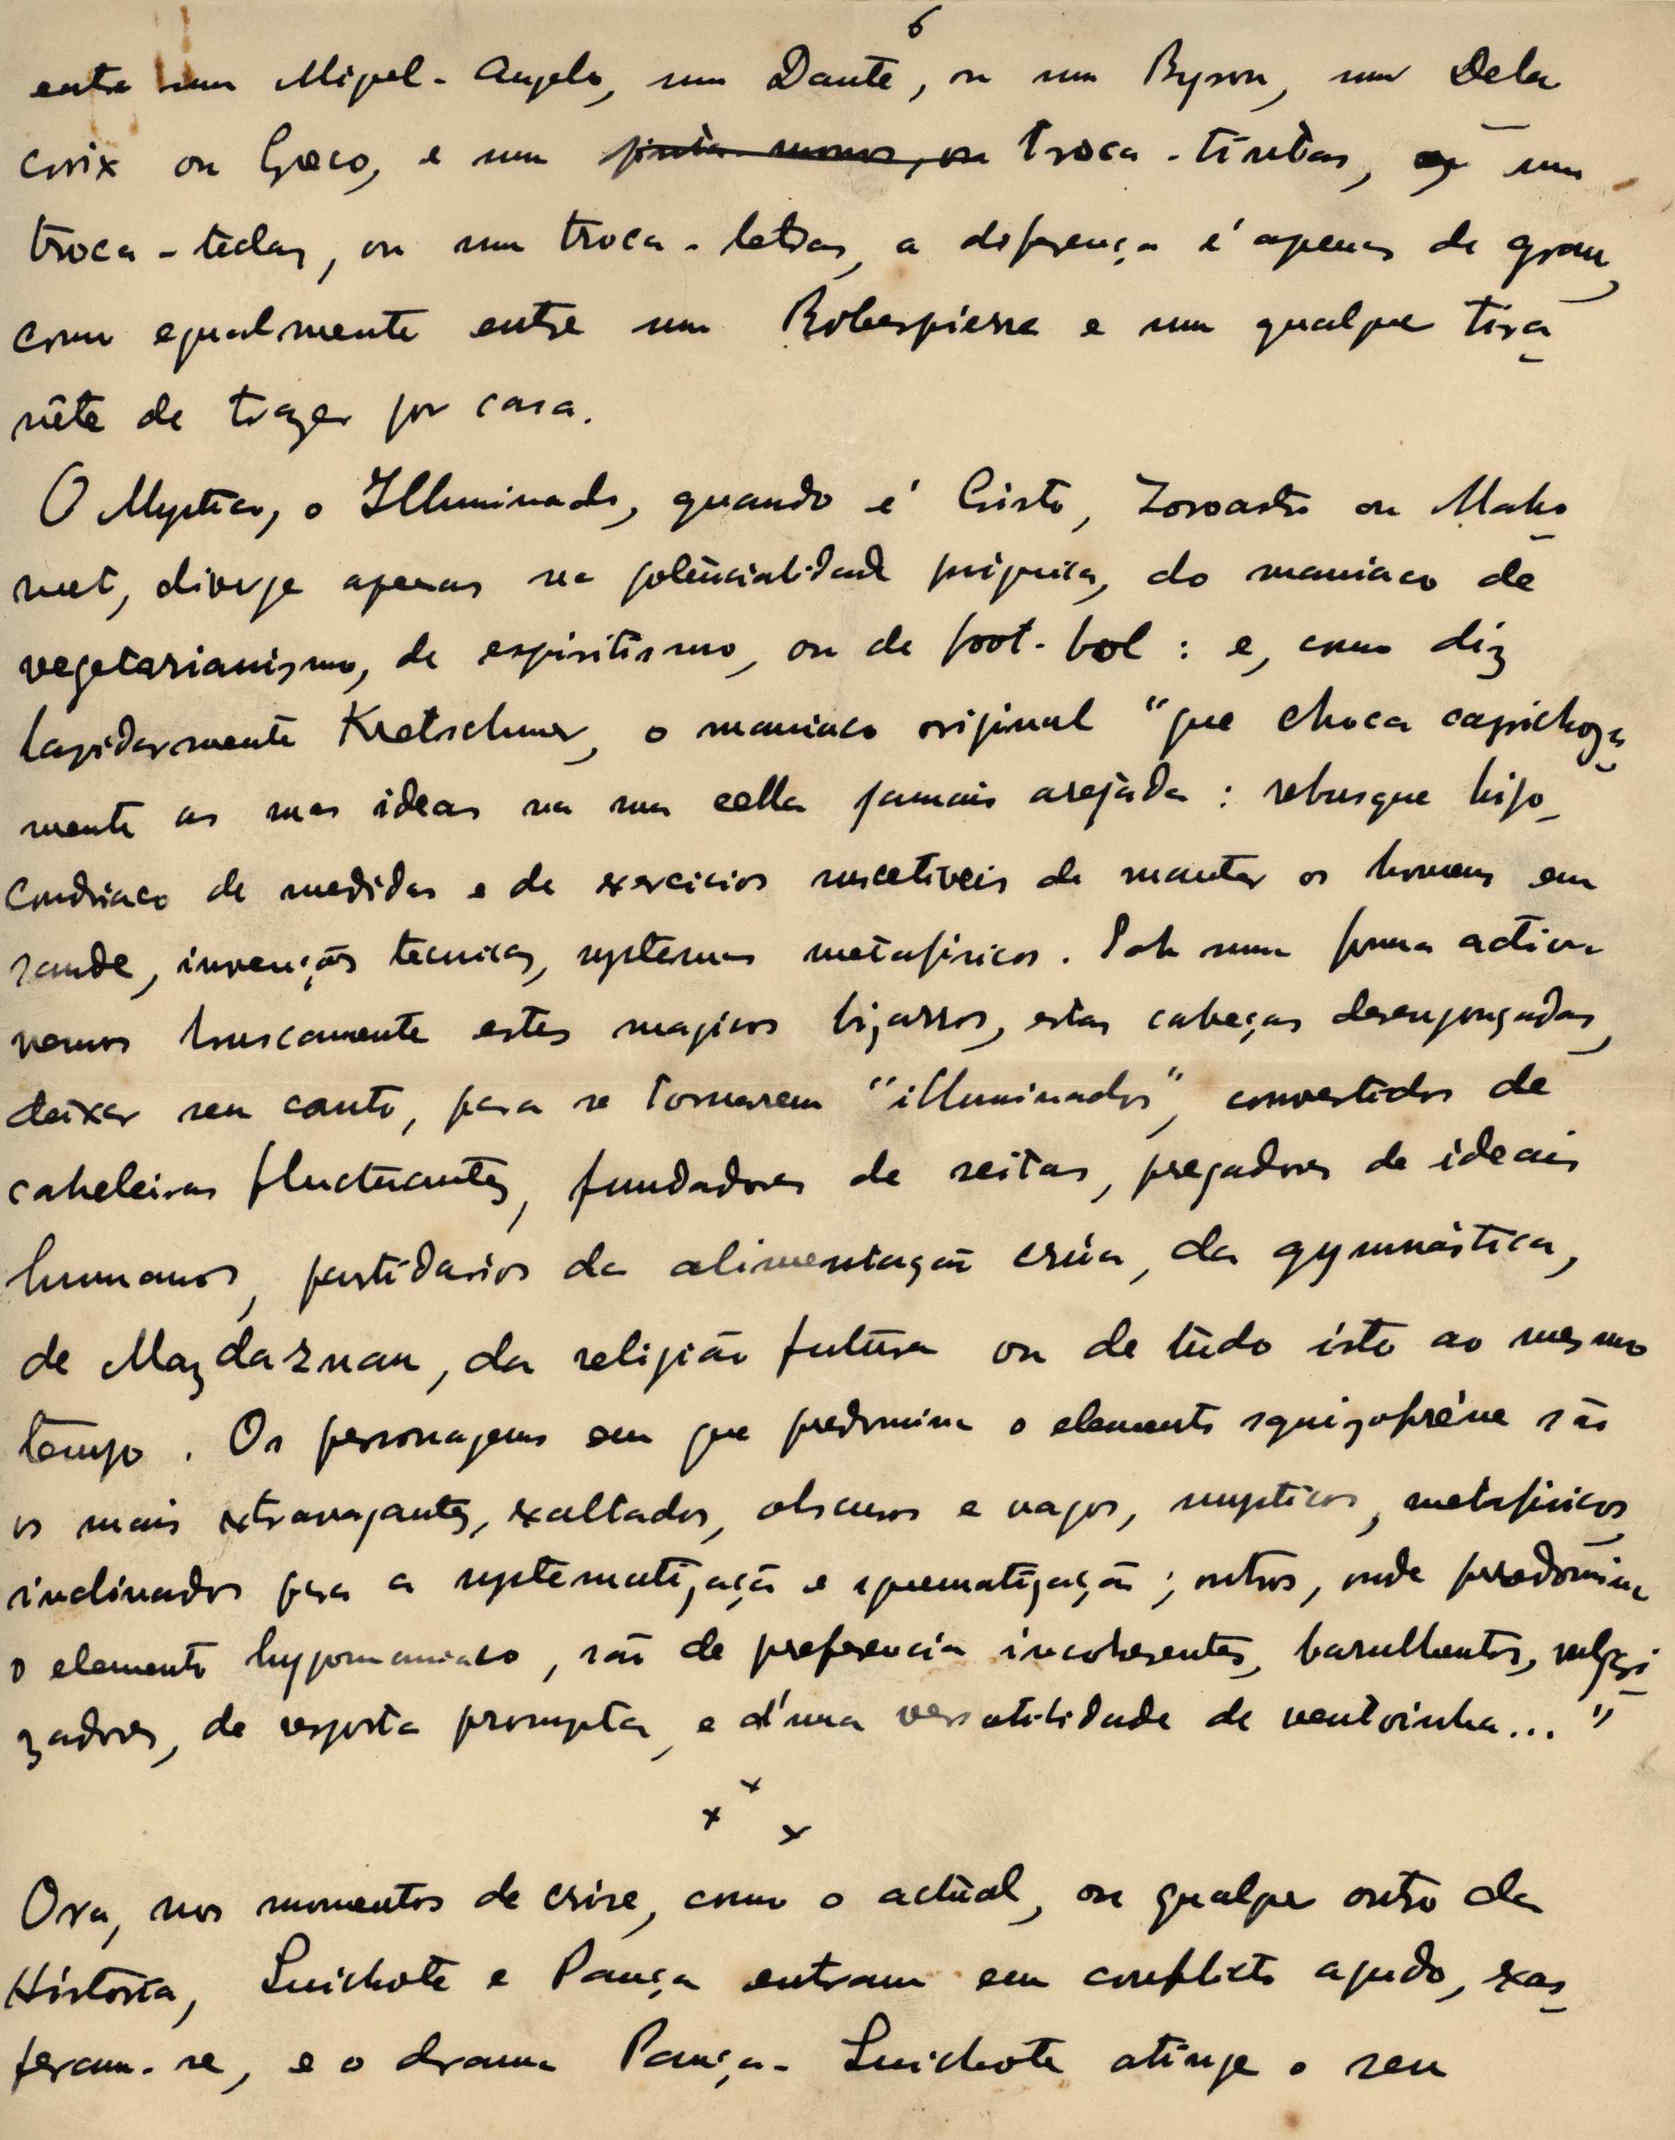 6
entre um Miguel-Angelo, um Dante, ou um Byron, um Dela
croix ou Greco, e um pinta-monos, ou troca-tintas, um
troca-tedas, ou um troca-letras, a diferença é apenas de grau,
como egualmente entre um Robespierre e um qualquer tira
nête de trazer por casa.
O Mystico, o Illuminado, quando é Cristo, Zoroastro ou Maho
met, diverge apenas na potencialidade psiquica, do maniaco de
vegetarianismo, de espiritismo, ou de foot-bol : e, como diz
lapidarmente Kretschmer, o maniaco original "que choca caprichosa
mente as suas ideas na sua cella jamais arejada : rebusque hipo
condriaco de medidas e de exercicios suscetiveis de manter os homens em
saude, invenções tecnicas, systemas metafisicos. Sob uma forma activa
vemos bruscamente estes magicos bizarros, estas cabeças desengonçadas,
deixar seu canto, para se tornarem "illuminados", convertidos de
cabeleiras fluctuantes, fundadores de seitas, pregadores de ideais
humanos, partidarios da alimentação crúa, da gymnástica,
de Mazdaznan, da religião futura ou de tudo isto ao mesmo
tempo. Os personagens em que predomina o elemento squizofréne são
os mais extravagantes, exaltados, obscuros e vagos, mysticos, metafisicos,
inclinados para a systematização e squematização ; outros, onde predomina
o elemento hypomaniaco, são de preferencia incoherentes, barulhentos, vulgari
zadores, de resposta prompta, e d'uma versatilidade de ventoinha... "
x x x
Ora, nos momentos de crise, como o actual, ou qualquer outro da
História, Quichote e Pança entram em conflicto agudo, exas
peram-se, e o drama Pança-Quichote atinge o seu